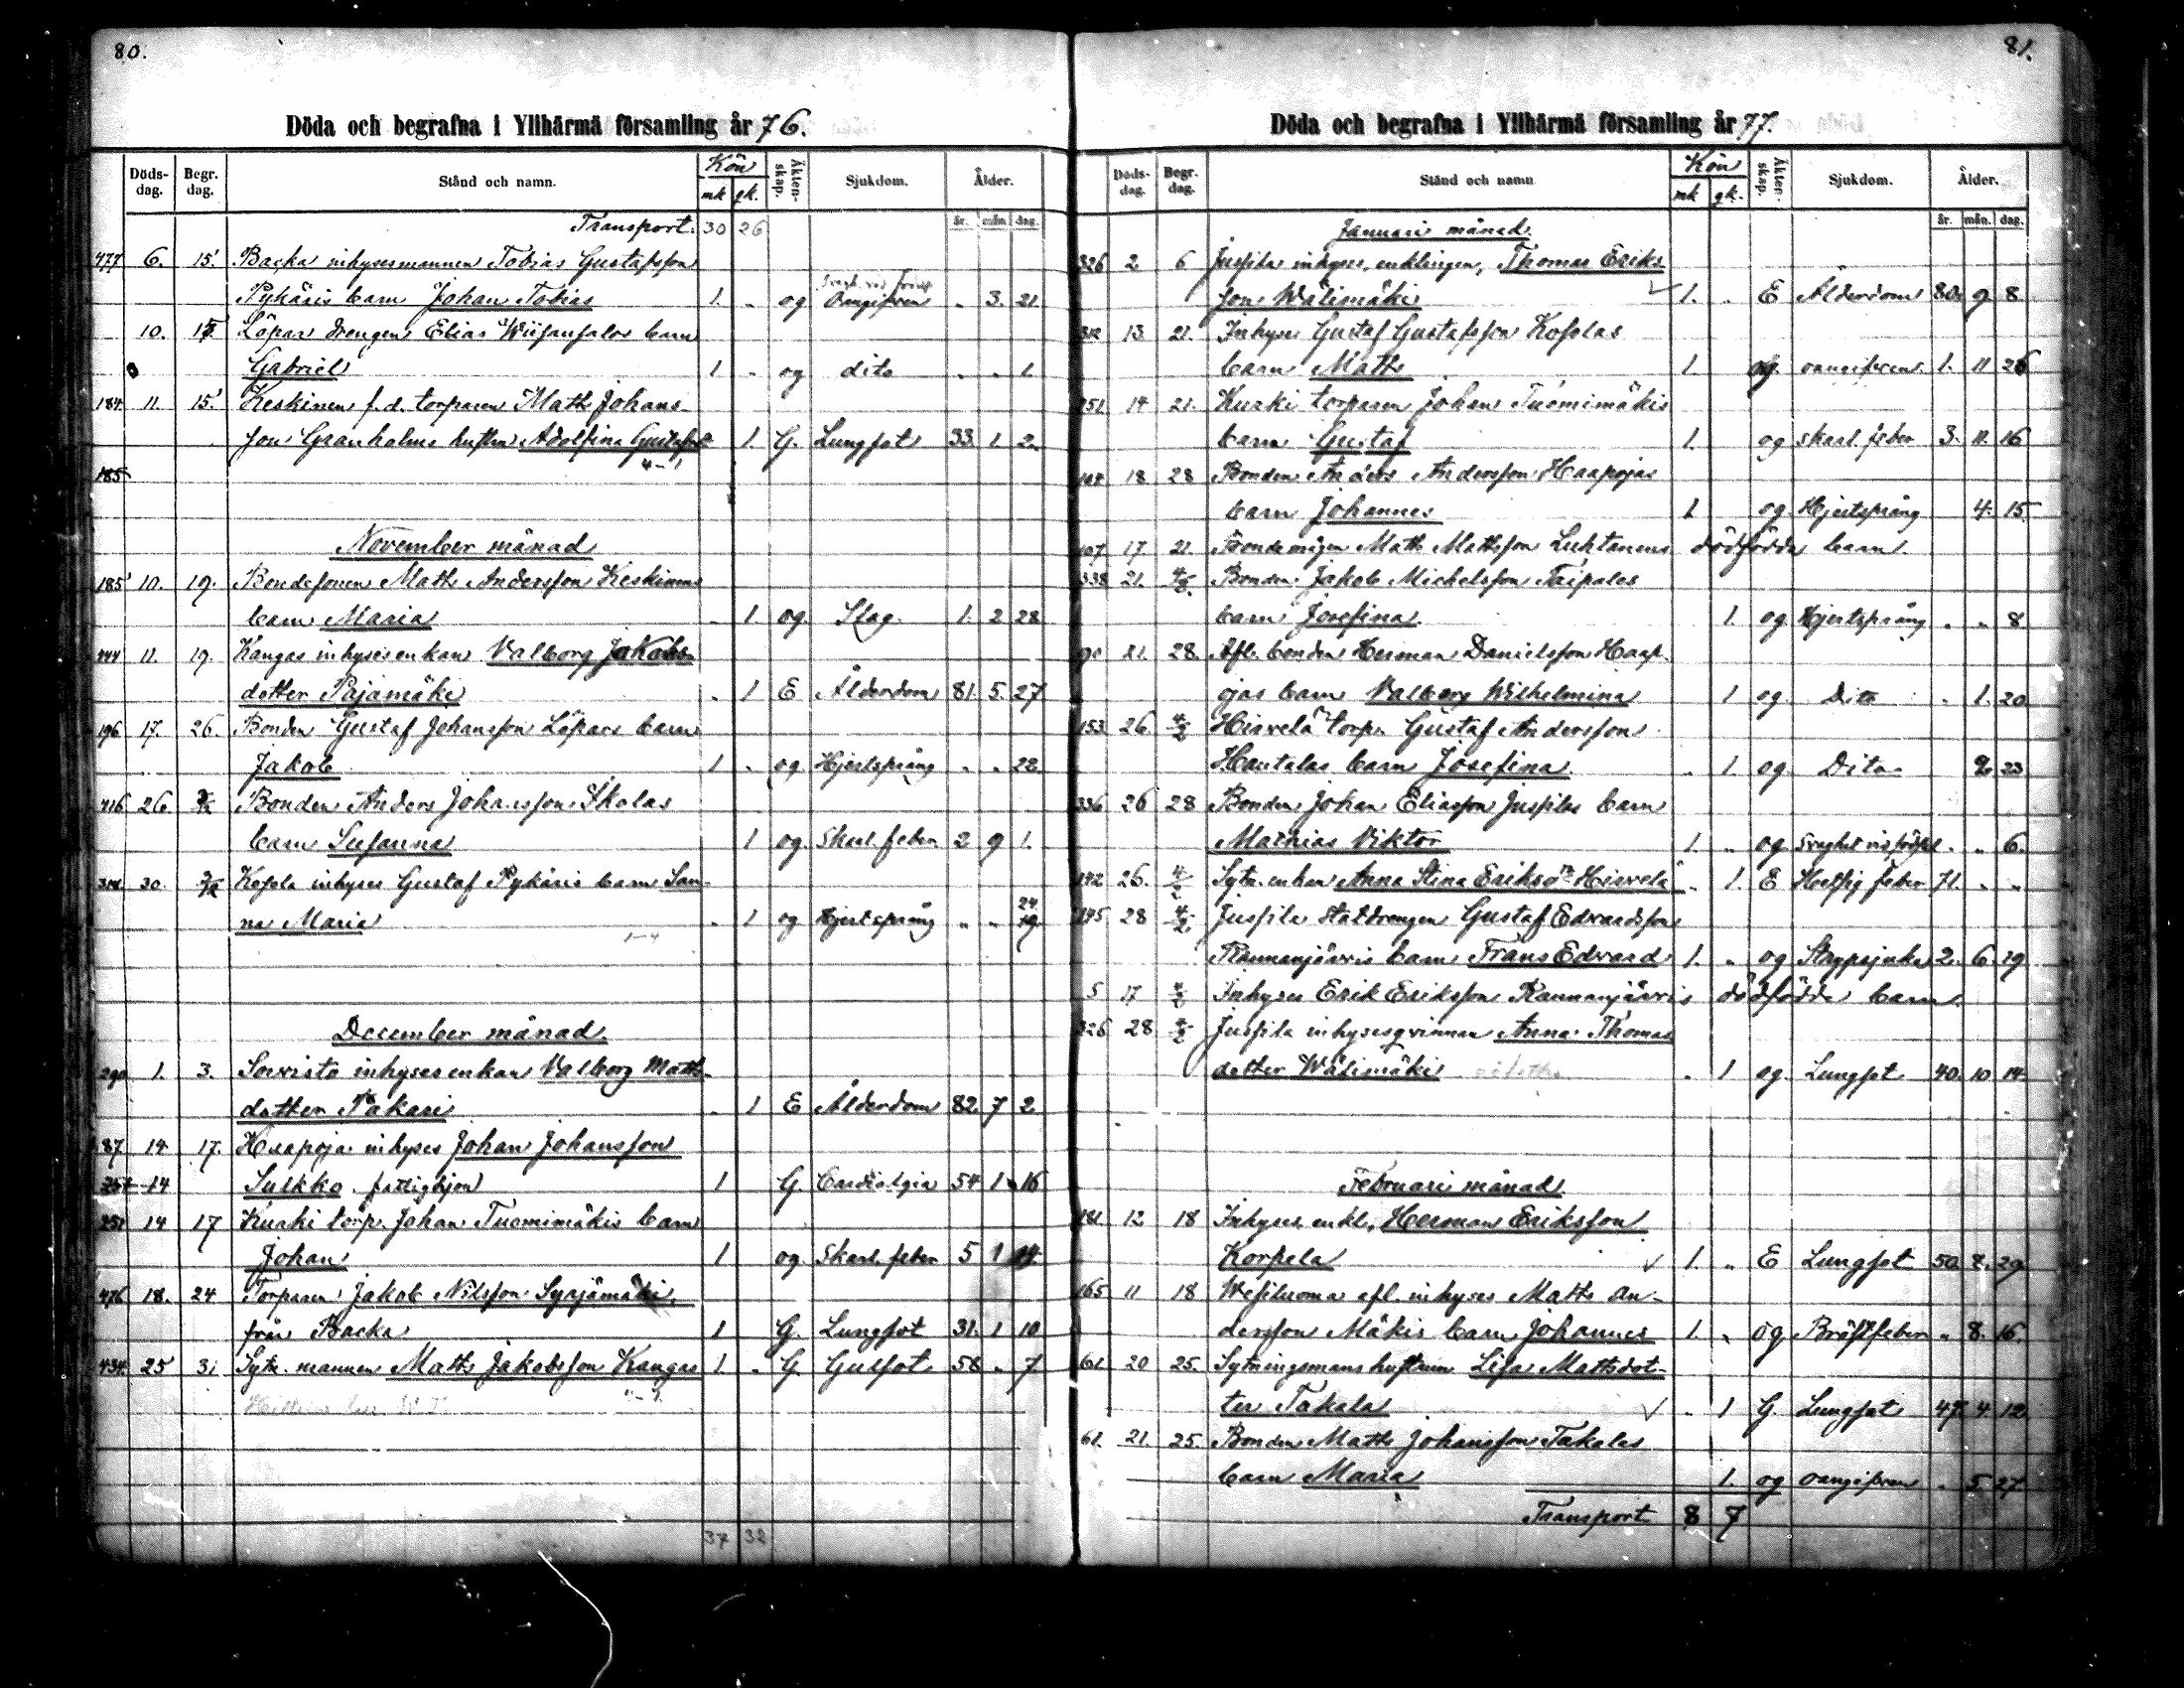 80.
Döda och begrafna i Ylihärmä församling år 76.
Döds-dag. Begr. dag. Stånd och namn. Kön mk qk. Äkten-skap. Sjukdom. Ålder. år. mån. dag.
Transport. 30 26
477 6. 15. Backa inhysesmannen Tobias Gustafsson
Pykäris barn Johan Tobias 1. " og Oangifven " 3. 21.
10. 15 Löpar drengen Elias barn
Gabriel 1 " og dito " " 1
184 11. 15. Keskinen f.d. torparen Matts Johans-
son Granholms hustru Adolfina Gustafsd. 1. G. Lungsot 33. 1 2.
185
November månad
185 10. 19. Bondesonen Matts Andersson Keskinens
barn Maria " 1 og Slag. 1. 2 28
444 11. 19. Kangas inhysesenkan Valborg Jakobs-
dotter Pajamäki " 1 E Ålderdom 81. 5. 27
196 17. 26. Bonden Gustaf Johansson Löpars barn
Jakob 1 " og Hjertsprång " " 22
416 26. 3/12 Bonden Anders Johansson Skolas
barn Susanna 1 og Skarl. feber 2 9 1.
30. 3/12 Kosola inhyses Gustaf Pykäris barn San-
na Maria " 1 og Hjertsprång " " 24
December månad
290 1. 3. Sorvisto inhysesenkan Valborg Matts-
dotter Pakari " 1 E Ålderdom 82. 7 2
87 14 17. Haapoja inhyses Johan Johansson
257 14 Sulkko. fattighjon 1 G. Cardialgia 54 1 16
251 14 17 Kuoki torp. Johan Tuomimäkis barn
Johan 1 og Skarl. feber 5 1 14
476 18. 24 Torparen Jakob Nilsson Syrjämäki,
från Backa 1 G. Lungsot 31. 1 10
434. 25 31 Sytn. mannen Matts Jakobsson Kangas 1. " G. Gulsot 58 " 7
37 32
81.
Döda och begrafna i Ylihärmä församling år 77.
Döds-dag. Begr. dag. Stånd och namn Kön mk qk. Äkten-skap. Sjukdom. Ålder. år. mån. dag.
Januari månad.
326 2 6 Jussila inhyses, enklingen, Thomas Eriks-
son Wälimäki 1. " E Ålderdom 80. 9. 8
312 13. 21. Inhyses Gustaf Gustafsson Kosolas
barn Matts 1. og. oangifven 1. 11 26
251 14 21. Kuoki torparen Johan Tuomimäkis
barn Gustaf 1. og skarl. feber 3. 11. 16
104 18 28 Bonden Anders Andersson Haapojas
barn Johannes 1 og Hjertsprång 4. 15
107 17 21. Bondemågen Matts Mattsson Luhtanens dödfödda barn.
338 21. 4/2. Bonden Jakob Michelsson Taipales
barn Josefina. 1. og. Hjertsprång " " 8
90 21. 28. Afl. bonden Herman Danielsson Haap-
ojas barn Valborg Wilhelmina 1 og. Dito " 1. 20
153. 26. 4/2 Hirvelä torp. Gustaf Andersson
Hautalas barn Josefina. " 1. og Dito 2. 23
336 26 28 Bonden Johan Eliasson Jussilas barn
Mathias Viktor 1. " og Svaghet vid födsel " " 6.
142 26. 4/2 Sytn. enkan Anna Stina Eriksdr Hirvelä " 1. E Hettsig feber 71. " "
145 28 4/2 Jussila statdrengen Gustaf Edvardsson
Rannanjärvis barn Frans Edvard 1. " og Slagsjuka 2. 6. 19
5 17 4/2 Inhyses Erik Eriksson Rannanjärvis dödfödda barn.
326 28 4/2 Jussila inhysesqvinnan Anna Thomas-
dotter Wälimäki " 1 og. Lungsot 40. 10 14
Februari månad
181 12 18 Inhyses enkl. Herman Eriksson
Korpela 1. " E Lungsot 50. 2. 29
165 11 18 Wesiluoma afl. inhyses Matts An-
dersson Mäkis barn Johannes 1. " og Bröstfeber " 8. 16.
61. 20 25. Sytningsmans hustrun Lisa Mattsdot-
ter Takala " 1 G. Lungsot 47. 4. 12.
61. 21. 25. Bonden Matts Johansson Takalas
barn Maria 1. og oangifven " 5 27
Transport 8 7